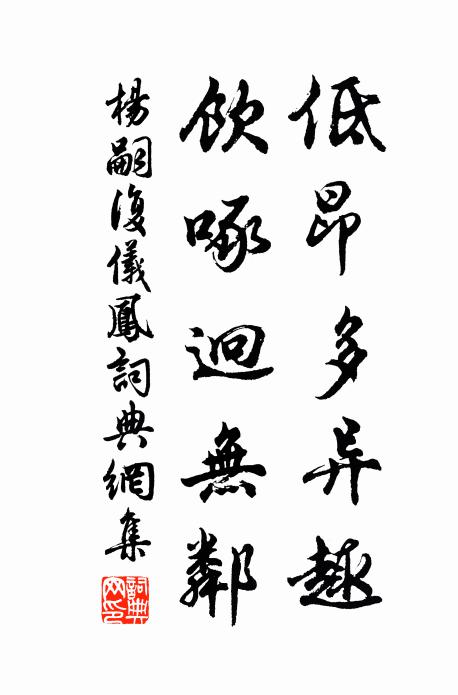 低昂多异趣
飲啄迥無鄰
楊嗣復儀鳳詞典網集
詞典网印